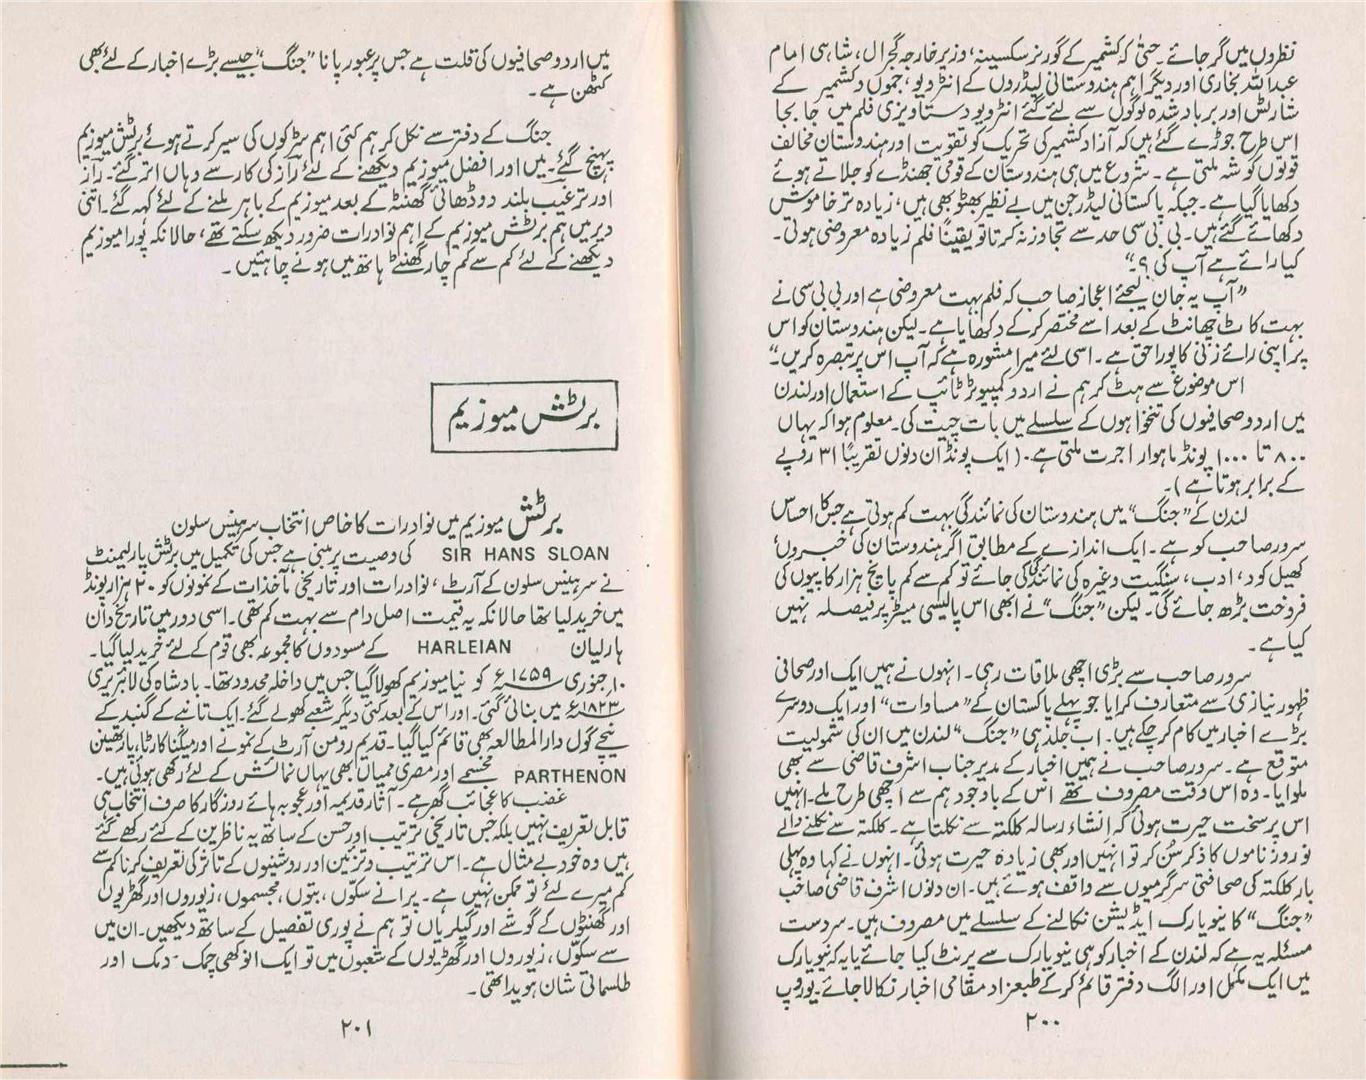 نظروں میں گر جائے۔ حتیٰ کہ کشمیر کے گورنر سکسینہ، وزیر خارجہ گجرال، شاہی امام
عبداللہ بخاری اور دیگر اہم ہندوستانی لیڈروں کے انٹرویو، جموں و کشمیر کے
شارٹس اور برباد شدہ لوگوں سے لئے گئے انٹرویو دستاویزی فلم میں جا بجا
اس طرح جوڑے گئے ہیں کہ آزاد کشمیر کی تحریک کو تقویت اور ہندوستان مخالف
قوتوں کو شہ ملتی ہے۔ شروع میں ہی ہندوستان کے قومی جھنڈے کو جلاتے ہوئے
دکھایا گیا ہے۔ جبکہ پاکستانی لیڈر جن میں بے نظیر بھٹو بھی ہیں، زیادہ تر خاموش
دکھائے گئے ہیں۔ بی بی سی حد سے تجاوز نہ کرتا تو یقیناً فلم زیادہ معروضی ہوتی۔
کیا رائے ہے آپ کی؟“
”آپ یہ جان لیجئے اعجاز صاحب کہ فلم بہت معروضی ہے اور بی بی سی نے
بہت کاٹ چھانٹ کے بعد اسے مختصر کر کے دکھایا ہے۔ لیکن ہندوستان کو اس
پر اپنی رائے زنی کا پورا حق ہے۔ اسی لئے میرا مشورہ ہے کہ آپ اس پر تبصرہ کریں۔“
اس موضوع سے ہٹ کر ہم نے اردو کمپیوٹر ٹائپ کے استعمال اور لندن
میں اردو صحافیوں کی تنخواہوں کے سلسلے میں بات چیت کی۔ معلوم ہوا کہ یہاں
۸۰۰ تا ۱۰۰۰ پونڈ ماہوار اجرت ملتی ہے۔ (ایک پونڈ ان دنوں تقریباً ۳۱ روپے
کے برابر ہوتا ہے)۔
لندن کے ”جنگ“ میں ہندوستان کی نمائندگی بہت کم ہوتی ہے جس کا احساس
سرور صاحب کو ہے۔ ایک اندازے کے مطابق اگر ہندوستان کی خبروں،
کھیل کود، ادب، سنگیت وغیرہ کی نمائندگی کی جائے تو کم سے کم پانچ ہزار کاپیوں کی
فروخت بڑھ جائے گی۔ لیکن ”جنگ“ نے ابھی اس پالیسی میٹر پر فیصلہ نہیں
کیا ہے۔
سرور صاحب سے بڑی اچھی ملاقات رہی۔ انہوں نے ہمیں ایک اور صحافی
ظہور نیازی سے متعارف کرایا جو پہلے پاکستان کے ”مساوات“ اور ایک دوسرے
بڑے اخبار میں کام کر چکے ہیں۔ اب جلد ہی ”جنگ“ لندن میں ان کی شمولیت
متوقع ہے۔ سرور صاحب نے ہمیں اخبار کے مدیر جناب اشرف قاضی سے بھی
ملوایا۔ وہ اس وقت مصروف تھے اس کے باوجود ہم سے اچھی طرح ملے۔ انہیں
اس پر سخت حیرت ہوئی کہ اِنشاء رسالہ کلکتہ سے نکلتا ہے۔ کلکتہ سے نکلنے والے
نو روزناموں کا ذکر سُن کر تو انہیں اور بھی زیادہ حیرت ہوئی۔ انہوں نے کہا وہ پہلی
بار کلکتہ کی صحافتی سرگرمیوں سے واقف ہوئے ہیں۔ ان دنوں اشرف قاضی صاحب
”جنگ“ کا نیو یارک ایڈیشن نکالنے کے سلسلے میں مصروف ہیں۔ سردست
مسئلہ یہ ہے کہ لندن کے اخبار کو ہی نیویارک سے پرنٹ کیا جائے یا یہ کہ نیو یارک
میں ایک مکمل اور الگ دفتر قائم کر کے طبعزاد مقامی اخبار نکالا جائے۔ یوروپ
۲۰۰
میں اردو صحافیوں کی قلت ہے جس پر عبور پانا ”جنگ“ جیسے بڑے اخبار کے لئے بھی
کٹھن ہے۔
جنگ کے دفتر سے نکل کر ہم کئی اہم سڑکوں کی سیر کرتے ہوئے برٹش میوزیم
پہنچ گئے۔ میں اور افضل میوزیم دیکھنے کے لئے راز کی کار سے وہاں اتر گئے۔ راز
اور ترغیب بلند دو ڈھائی گھنٹہ کے بعد میوزیم کے باہر ملنے کے لئے کہہ گئے۔ اتنی
دیر میں ہم برٹش میوزیم کے اہم نوادرات ضرور دیکھ سکتے تھے، حالانکہ پورا میوزیم
دیکھنے کے لئے کم سے کم چار گھنٹے ہاتھ میں ہونے چاہئیں۔
برٹش میوزیم
برٹش میوزیم میں نوادرات کا خاص انتخاب سر ہینس سلون
SIR HANS SLOAN کی وصیت پر مبنی ہے جس کی تکمیل میں برٹش پارلیمنٹ
نے سر ہینس سلون کے آرٹ، نوادرات اور تاریخی مآخذات کے نمونوں کو ۲۰ ہزار پونڈ
میں خرید لیا تھا حالانکہ یہ قیمت اصل دام سے بہت کم تھی۔ اسی دور میں تاریخ دان
ہارلیان HARLEIAN کے مسودوں کا مجموعہ بھی قوم کے لئے خرید لیا گیا۔
۱۰ جنوری ۱۷۵۹ء کو نیا میوزیم کھولا گیا جس میں داخلہ محدود تھا۔ بادشاہ کی لائبریری
۱۸۲۳ء میں بنائی گئی۔ اور اس کے بعد کئی دیگر شعبے کھولے گئے۔ ایک تانبے کے گنبد کے
نیچے گول دارالمطالعہ بھی قائم کیا گیا۔ قدیم رومن آرٹ کے نمونے اور میگنا کارٹا، پارتھین
PARTHENON مجسمے اور مصری ممیاں بھی یہاں نمائش کے لئے رکھی ہوئی ہیں۔
غضب کا عجائب گھر ہے۔ آثار قدیمہ اور عجوبہ ہائے روزگار کا صرف انتخاب ہی
قابل تعریف نہیں بلکہ جس تاریخی ترتیب اور حسن کے ساتھ یہ ناظرین کے لئے رکھے گئے
ہیں وہ خود بے مثال ہے۔ اس ترتیب و تزئین اور روشنیوں کے تاثر کی تعریف کرنا کم سے
کم میرے لئے تو ممکن نہیں ہے۔ پرانے سکّوں، بتوں، مجسموں، زیوروں اور گھڑیوں
اور گھنٹوں کے گوشے اور گیلریاں تو ہم نے پوری تفصیل کے ساتھ دیکھیں۔ ان میں
سے سکّوں، زیوروں اور گھڑیوں کے شعبوں میں تو ایک انوکھی چمک دمک اور
طلسماتی شان ہویدا تھی۔
۲۰۱